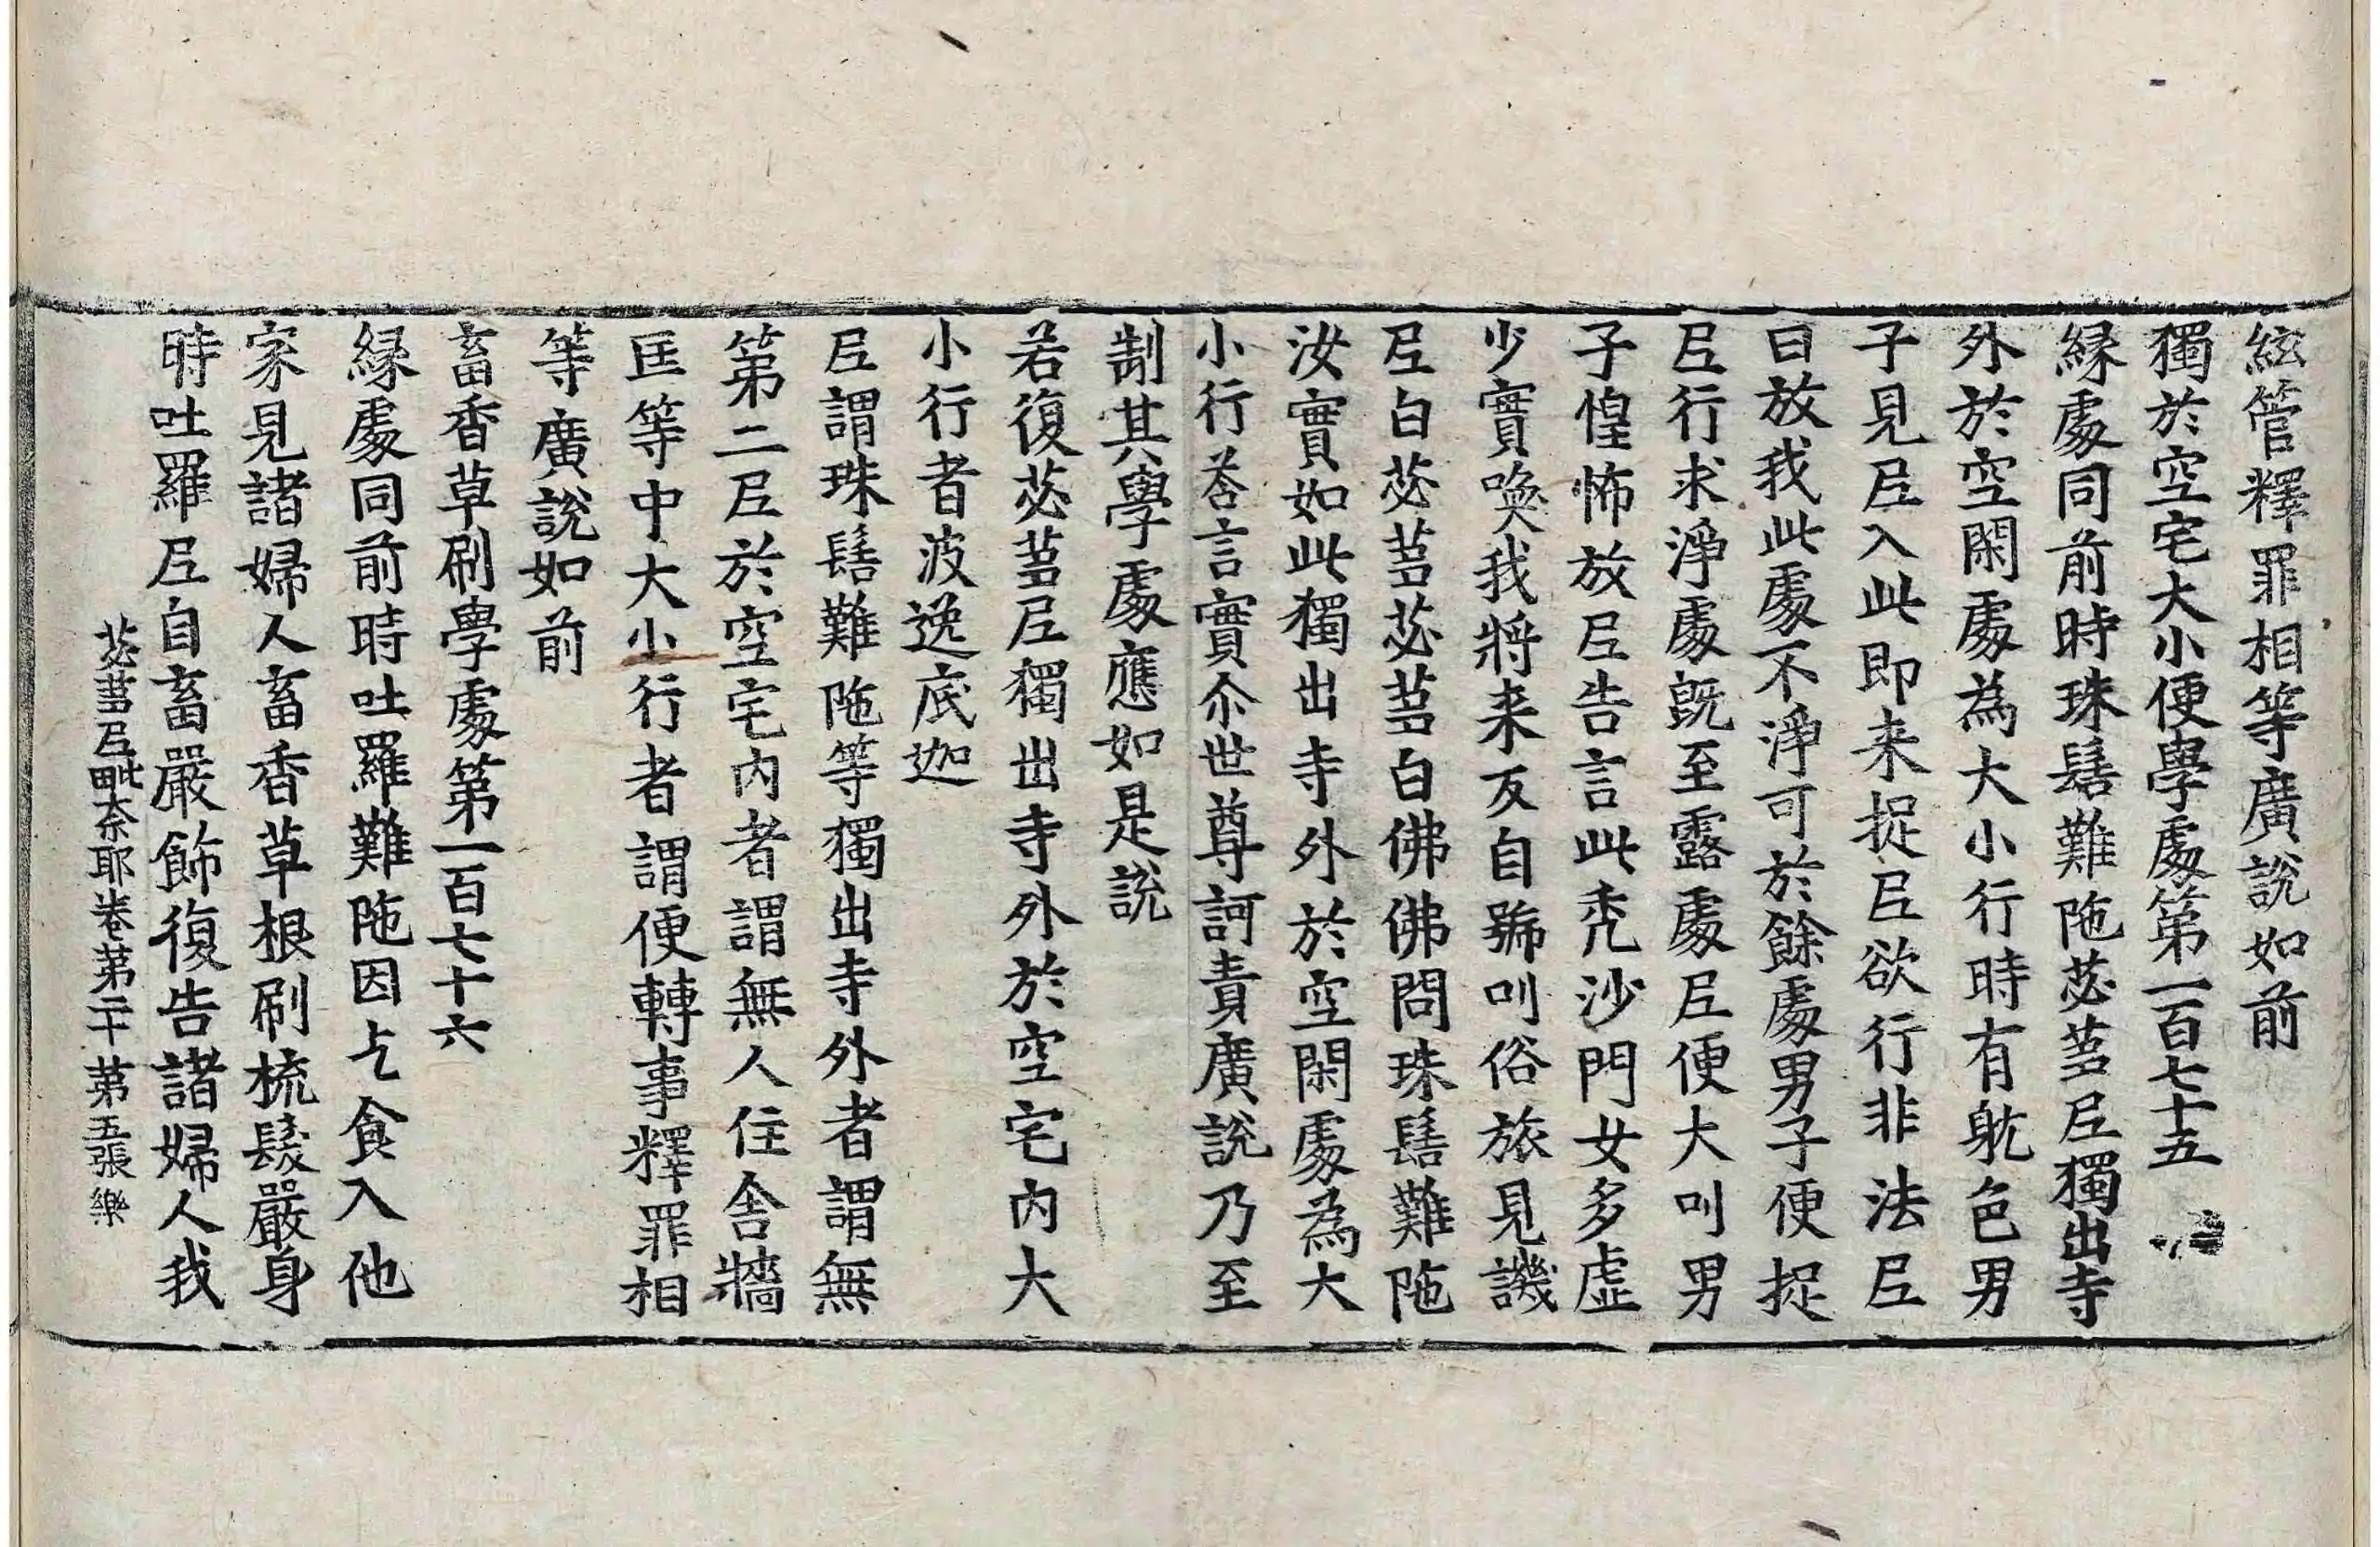 絃管釋罪相等廣說如前
獨於空宅大小便學處第一百七十五
緣處同前時珠髻難陁苾蒭尼獨出寺
外於空閑處為大小行時有躭色男
子見尼入此即来捉尼欲行非法尼
曰放我此處不淨可於餘處男子便捉
尼行求淨處既至露處尼便大叫男
子惶怖放尼告言此禿沙門女多虛
少實喚我將来反自號叫俗旅見譏
尼白苾蒭苾蒭白佛佛問珠髻難陁
汝實如此獨出寺外於空閑處為大
小行荅言實尒世尊訶責廣說乃至
制其學處應如是說
若復苾蒭尼獨出寺外於空宅內大
小行者波逸底迦
尼謂珠髻難陁等獨出寺外者謂無
第二尼於空宅內者謂無人住舍牆
匡等中大小行者謂便轉事釋罪相
等廣說如前
畜香草刷學處第一百七十六
緣處同前時吐羅難陁因乞食入他
家見諸婦人畜香草根刷梳髮嚴身
時吐羅尼自畜嚴飾復告諸婦人我
苾蒭尼毗奈耶卷第二十 第五張 樂